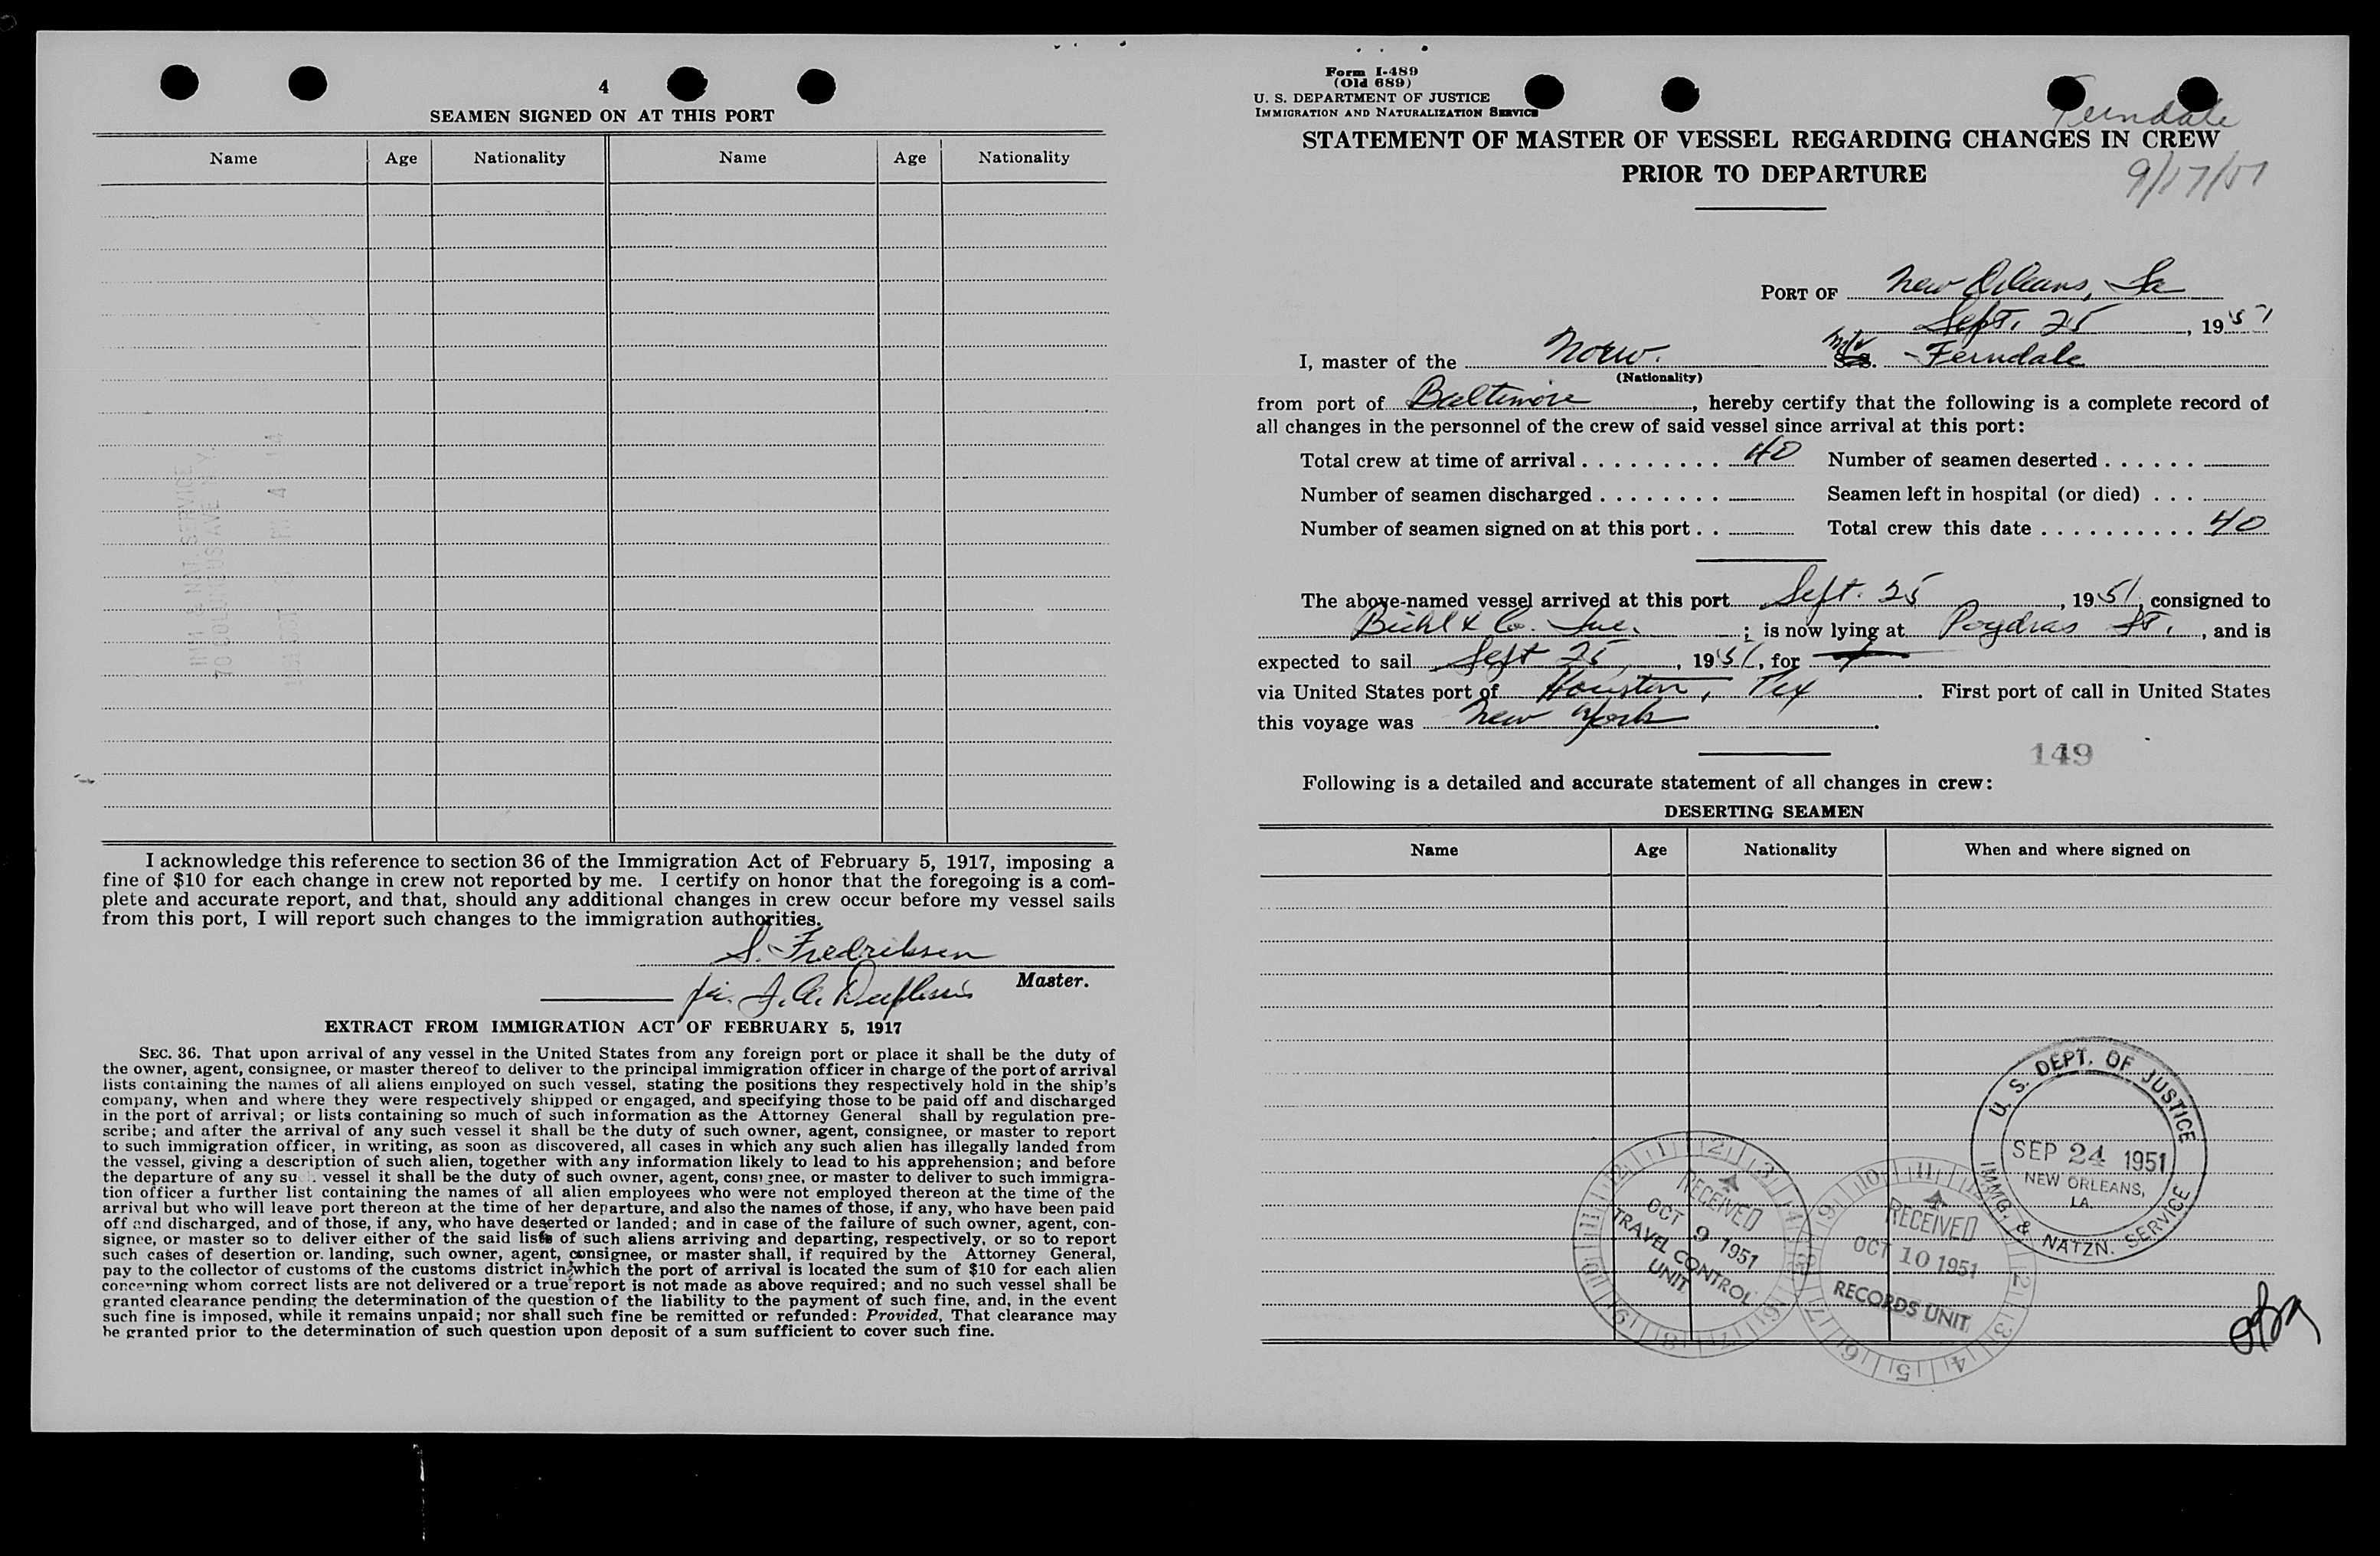 4
SEAMEN SIGNED ON AT THIS PORT
Name Age Nationality Name Age Nationality
I acknowledge this reference to section 36 of the Immigration Act of February 5, 1917, imposing a
fine of $10 for each change in crew not reported by me. I certify on honor that the foregoing is a com-
plete and accurate report, and that, should any additional changes in crew occur before my vessel sails
from this port, I will report such changes to the immigration authorities.
S. Fredriksen
Master.
EXTRACT FROM IMMIGRATION ACT OF FEBRUARY 5, 1917
SEC. 36. That upon arrival of any vessel in the United States from any foreign port or place it shall be the duty of
the owner, agent, consignee, or master thereof to deliver to the principal immigration officer in charge of the port of arrival
lists containing the names of all aliens employed on such vessel, stating the positions they respectively hold in the ship's
company, when and where they were respectively shipped or engaged, and specifying those to be paid off and discharged
in the port of arrival; or lists containing so much of such information as the Attorney General shall by regulation pre-
scribe; and after the arrival of any such vessel it shall be the duty of such owner, agent, consignee, or master to report
to such immigration officer, in writing, as soon as discovered, all cases in which any such alien has illegally landed from
the vessel, giving a description of such alien, together with any information likely to lead to his apprehension; and before
the departure of any su . vessel it shall be the duty of such owner, agent, consignee, or master to deliver to such immigra-
tion officer a further list containing the names of all alien employees who were not employed thereon at the time of the
arrival but who will leave port thereon at the time of her departure, and also the names of those, if any, who have been paid
off and discharged, and of those, if any, who have deserted or landed; and in case of the failure of such owner, agent, con-
signee, or master so to deliver either of the said lists of such aliens arriving and departing, respectively, or so to report
such cases of desertion or landing, such owner, agent, consignee, or master shall, if required by the Attorney General,
pay to the collector of customs of the customs district in which the port of arrival is located the sum of $10 for each alien
concerning whom correct lists are not delivered or a true report is not made as above required; and no such vessel shall be
granted clearance pending the determination of the question of the liability to the payment of such fine, and, in the event
such fine is imposed, while it remains unpaid; nor shall such fine be remitted or refunded: Provided, That clearance may
be granted prior to the determination of such question upon deposit of a sum sufficient to cover such fine.
Form I-489
(Old 689)
U. S. DEPARTMENT OF JUSTICE
IMMIGRATION AND NATURALIZATION SERVICE
Ferndale
STATEMENT OF MASTER OF VESSEL REGARDING CHANGES IN CREW
PRIOR TO DEPARTURE
9/17/51
PORT OF New Orleans, La
Sept. 25, 1951
I, master of the Norw. M/V Ferndale
(Nationality)
from port of Baltimore, hereby certify that the following is a complete record of
all changes in the personnel of the crew of said vessel since arrival at this port:
Total crew at time of arrival . . . . . . . . . . 40 Number of seamen deserted . . . . . .
Number of seamen discharged . . . . . . . . Seamen left in hospital (or died) . . .
Number of seamen signed on at this port . . Total crew this date . . . . . . . . . . 40
The above-named vessel arrived at this port Sept. 25, 1951, consigned to
Biehl & Co. Inc. ; is now lying at Poydras St., and is
expected to sail Sept 25, 1951, for
via United States port of Houston, Tex. First port of call in United States
this voyage was New York.
149
Following is a detailed and accurate statement of all changes in crew:
DESERTING SEAMEN
Name Age Nationality When and where signed on
U. S. DEPT. OF JUSTICE
SEP 24 1951
NEW ORLEANS,
LA.
IMMG. & NATZN. SERVICE
RECEIVED
OCT 9 1951
TRAVEL CONTROL
UNIT
RECEIVED
OCT 10 1951
RECORDS UNIT